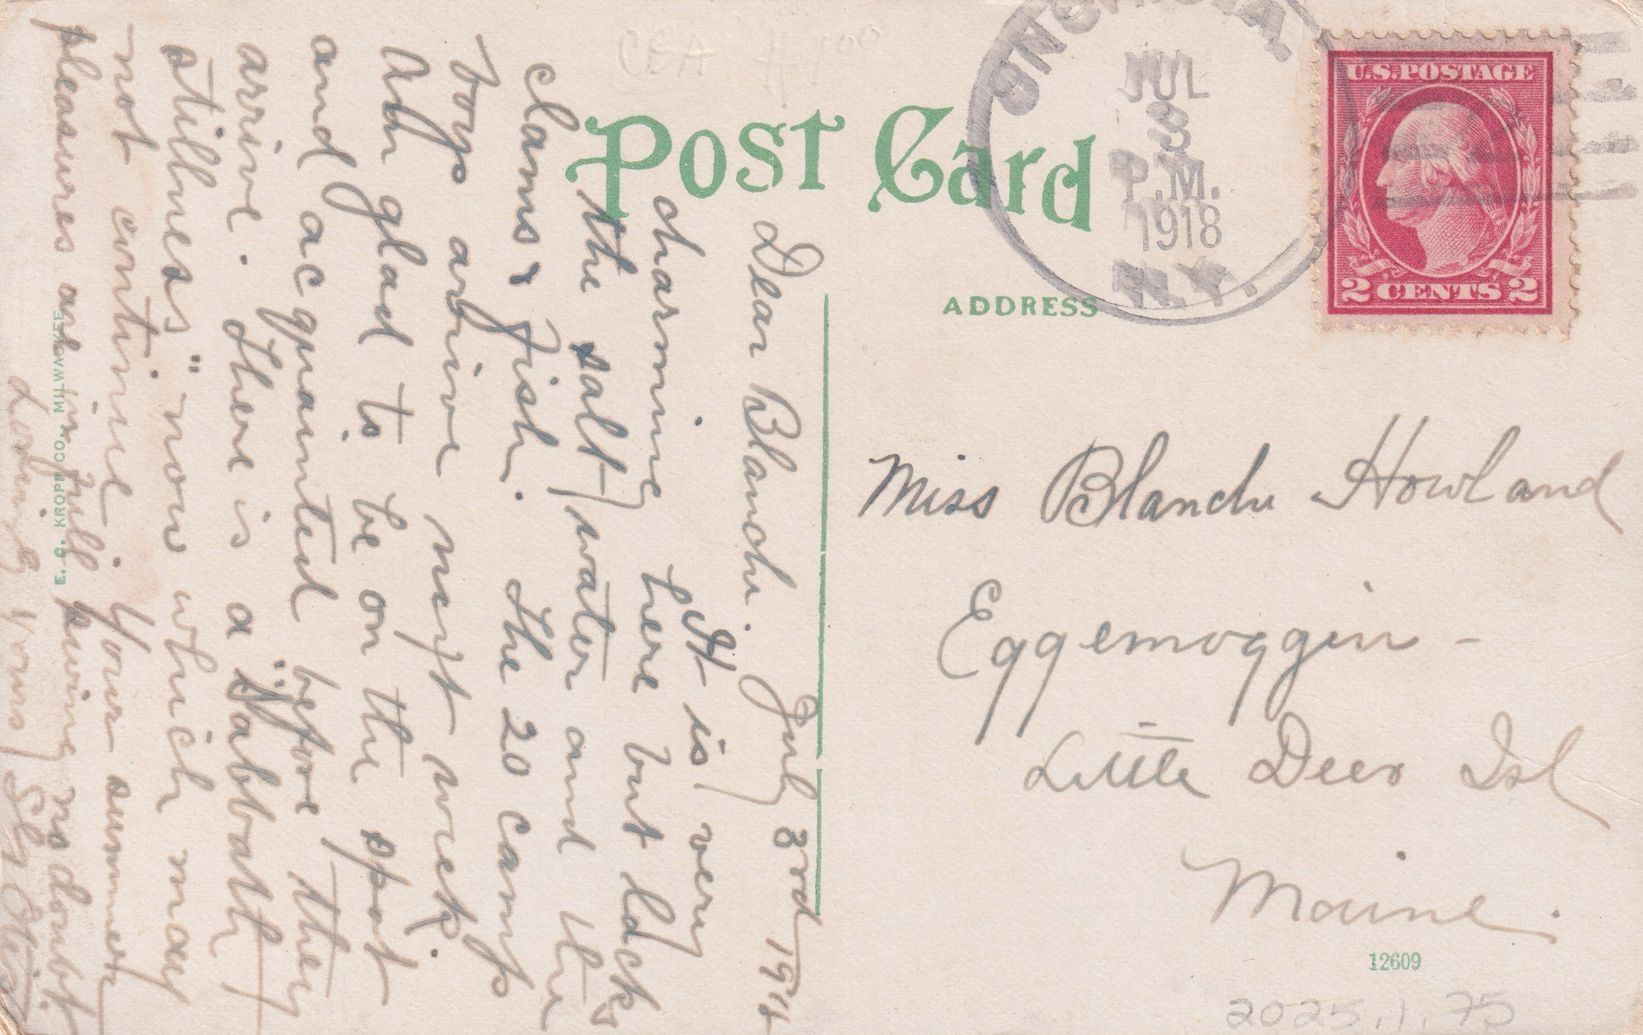 CEA H 1 00
POST Card
ADDRESS
JUL
3
P.M.
1918
N.Y.
U.S. POSTAGE
2 CENTS 2
July 3rd 1918
Dear Blanche.
It is very
charming here but lack
the salt water and the
clams & fish. The 20 camp
boys arrive next week.
Am glad to be on the spot
and acquainted before they
arrive. There is a "Sabbath
stillness" now which may
not continue. Your summer
pleasures are in full swing no doubt.
Loving yours
Miss Blanche Howland
Eggemoggin -
Little Deer Isl
Maine.
E. C. KROPP CO., MILWAUKEE
12609
2025.1.75